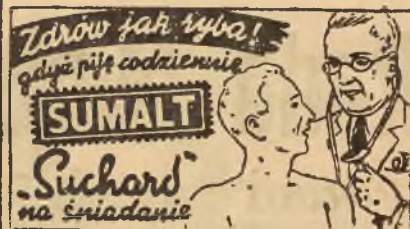 Zdrów jak ryba!
gdyż piję codziennie
SUMALT
„Suchard"
na śniadanie